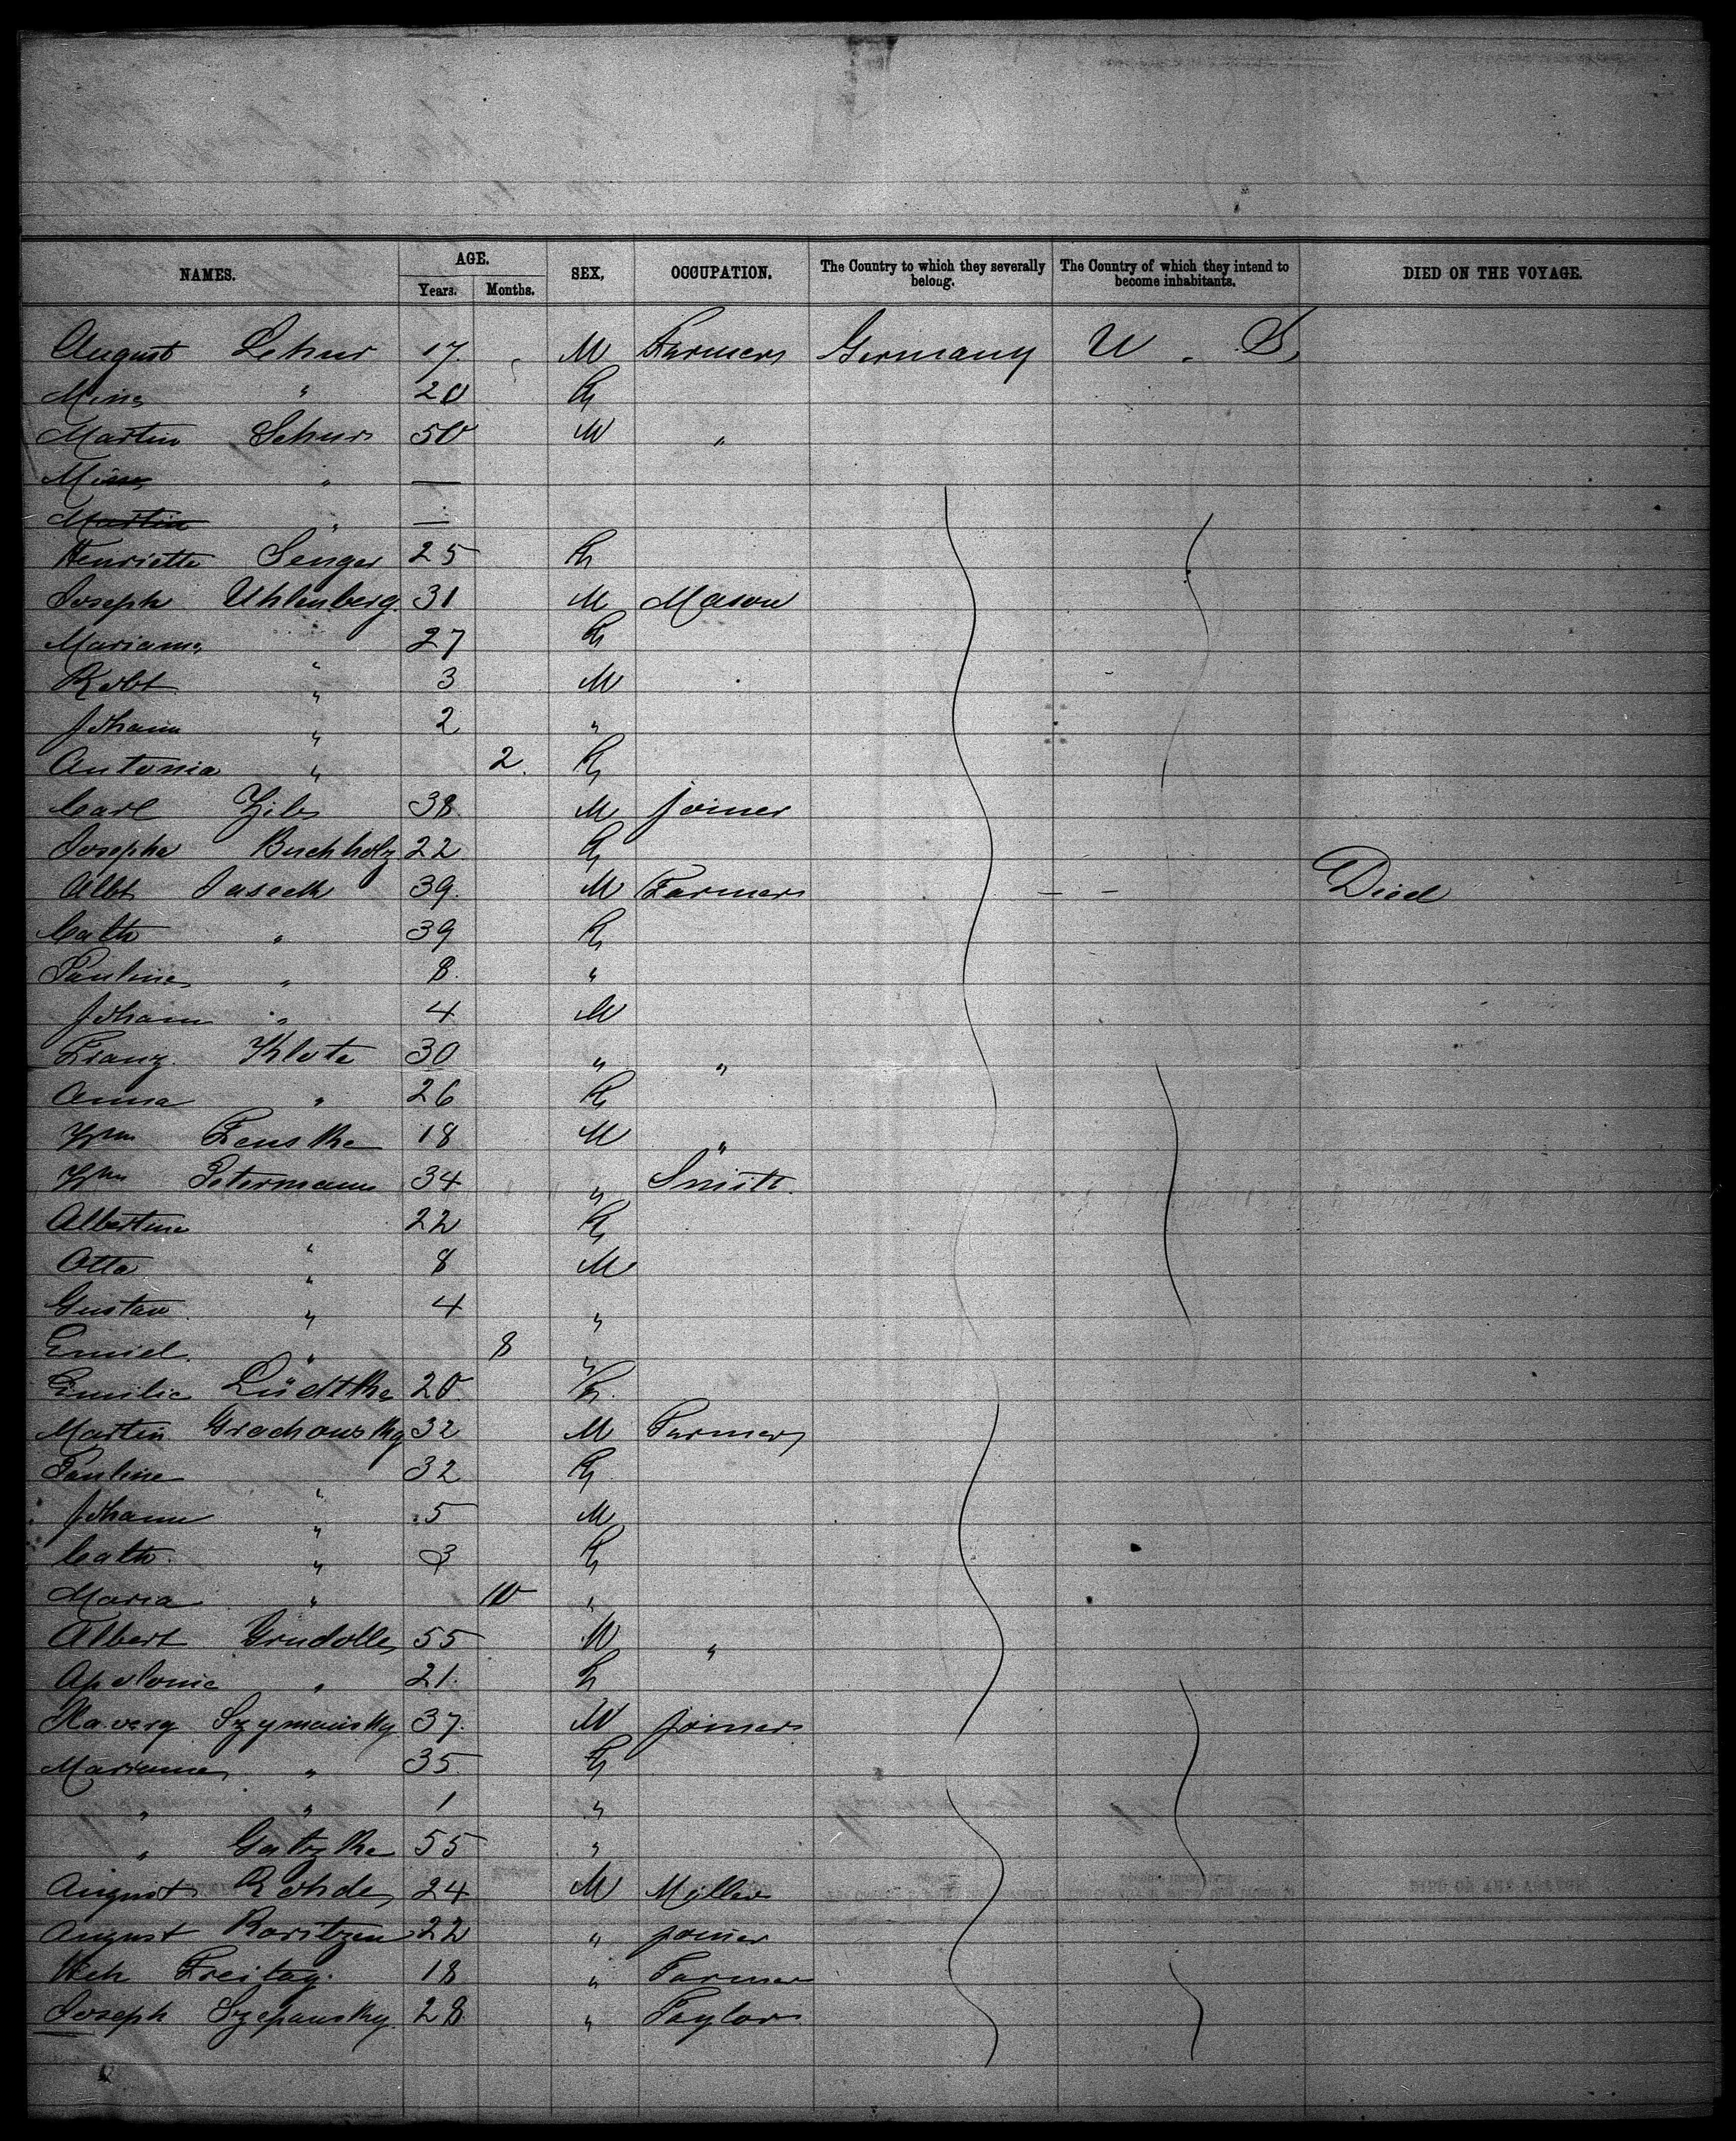 NAMES. AGE. SEX, OCCUPATION. The Country to which they severally belong. The Country of which they intend to become inhabitants. DIED ON THE VOYAGE.
Years. Months.
August Schur 17 M Farmer Germany U. S.
Mina " 20 F
Martin Schur 50 M "
Mina " —
Martin " —
Henriette Senger 25 F
Joseph Uhlenberg 31 M Mason
Marianna " 27 F
Robt " 3 M
Johann " 2 "
Antonia " 2 F
Carl 38 M Joiner
Josepha Buchholz 22 F
Albt Jaseck 39 M Farmer Died
Cath " 39 F
Pauline " 8 "
Johann " 4 M
Franz Klote 30 " "
Anna " 26 F
Wm Fenske 18 M "
Wm Petermann 34 " Smith
Albertine " 22 F
Otto " 8 M
Gustav " 4 "
Emiel " 8 "
Emilie Lüdtke 20 F
Martin Grochowsky 32 M Farmer
Pauline " 32 F
Johann " 5 M
Cath " 3 F
Maria " 10 "
Albert Grudolle 55 M "
Apolonie " 21 F
Szymansky 37 M Joiner
Marianna " 35 F
" " 1 "
" Gatzke 55 "
August Rohde 24 M Miller
August Koritzen 22 " Joiner
Hch Freitag 18 " Farmer
Joseph Szepansky 28 " Taylor